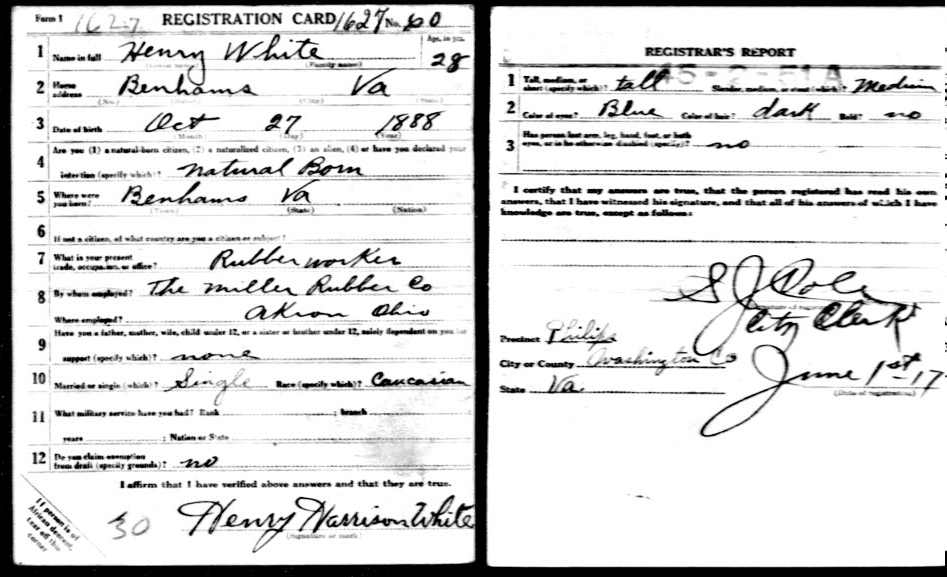 Form 1 1627 REGISTRATION CARD 1627 No. 60
1 Name in full Henry White Age, in yrs. 28
(Family name)
2 Home address Benhams Va
(No.) (City) (State)
3 Date of birth Oct 27 1888
(Month) (Day) (Year)
4 Are you (1) a natural-born citizen, (2) a naturalized citizen, (3) an alien, (4) or have you declared your
intention (specify which)? Natural Born
5 Where were you born? Benhams Va
(Town) (State) (Nation)
6 If not a citizen, of what country are you a citizen or subject?
7 What is your present trade, occupation, or office? Rubber worker
8 By whom employed? The Miller Rubber Co
Where employed? Akron Ohio
9 Have you a father, mother, wife, child under 12, or a sister or brother under 12, solely dependent on you for
support (specify which)? none
10 Married or single (which)? Single Race (specify which)? Caucasian
11 What military service have you had? Rank ; branch
years ; Nation or State
12 Do you claim exemption from draft (specify grounds)? no
I affirm that I have verified above answers and that they are true.
30 Henry Harrison White
(Signature or mark)
If person is of
African descent,
tear off this
corner
REGISTRAR'S REPORT
45-2-51A
1 Tall, medium, or short (specify which)? tall Slender, medium, or stout (which)? Medium
2 Color of eyes? Blue Color of hair? dark Bald? no
3 Has person lost arm, leg, hand, foot, or both
eyes, or is he otherwise disabled (specify)? no
I certify that my answers are true, that the person registered has read his own
answers, that I have witnessed his signature, and that all of his answers of which I have
knowledge are true, except as follows:
S J Cole
City Clerk
Precinct Philips
City or County Washington Co
State Va June 1st-17
(Date of registration)